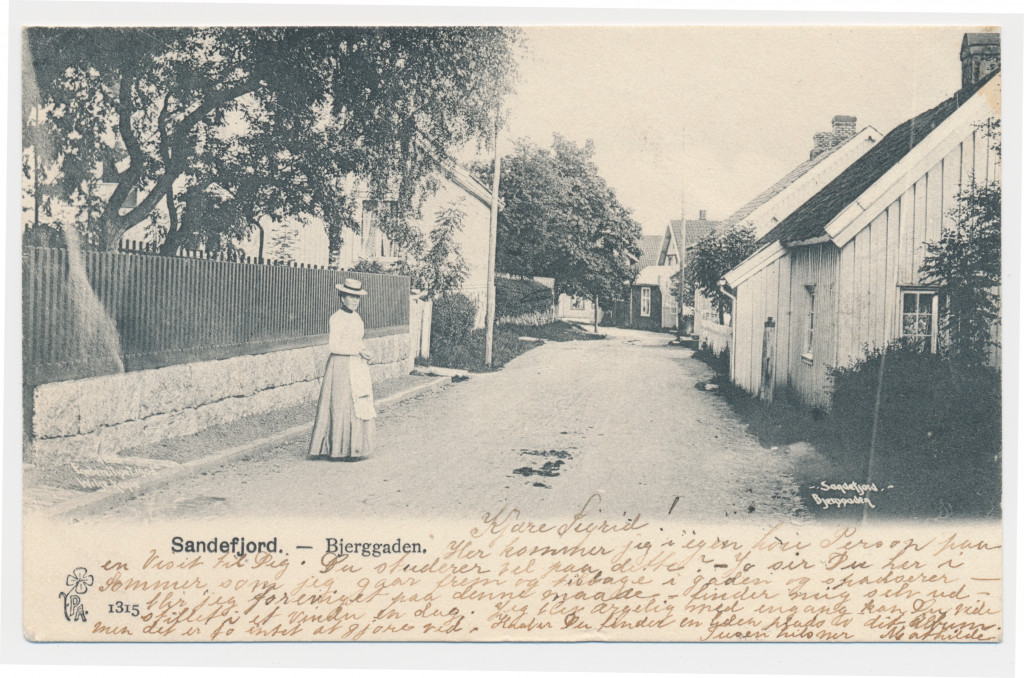 Sandefjord.
Bjerggaden
Sandefjord. — Bjerggaden.
Kjære Sigrid!
Her kommer jeg i egen høie Person paa
en Visit til Dig. Du studerer vel paa dette? - Jo ser Du her i
Sommer som jeg gaar frem og tilbage i gaden og spadserer —
blir jeg foreviget paa denne maade - finder mig selv ud-
stillet i et vindu en dag. Jeg blev ærgelig med engang kan Du vide
men det er jo intet at gjøre ved. - Haaber Du finder en liden plads i dit Album.
Tusen hilsner Mathilde
PA
1315